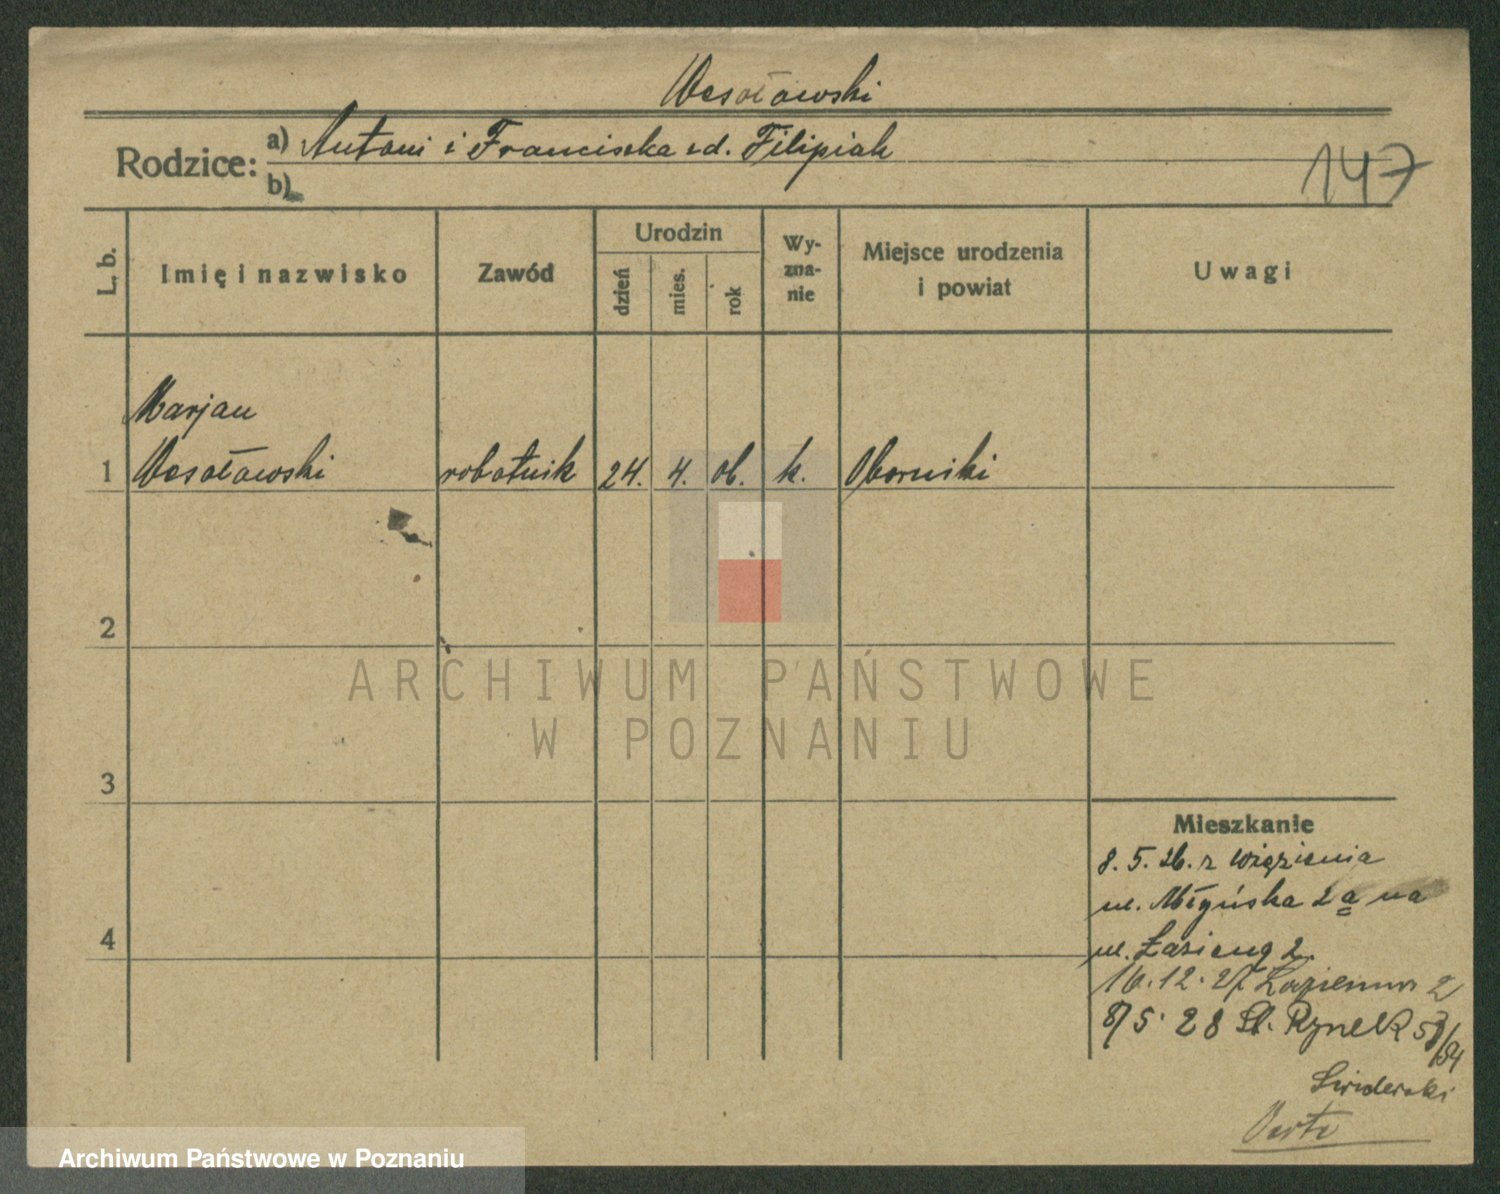 Wesołowski
Rodzice: a) Antoni i Franciszka zd. Filipiak
b)
147
L. b.
Imię i nazwisko
Zawód
Urodzin
dzień
mies.
rok
Wy-
zna-
nie
Miejsce urodzenia
i powiat
Uwagi
Marjan
1 Wesołowski robotnik 24. 4. 06. k. Oborniki
2
3
4
Mieszkanie
8. 5. 26. z więzienia
ul. Młyńska 2a na
ul. Łazienną 2.
16.12.27 Łazienna 2
8/5. 28 St. Rynek
Świderski
ARCHIWUM PAŃSTWOWE
W POZNANIU
Archiwum Państwowe w Poznaniu